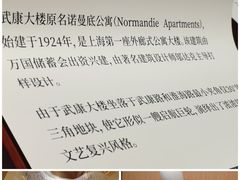 武康大楼原名诺曼底公寓(Normandie Apartments),
始建于1924年,是上海第一座外廊式公寓大楼,该建筑由
万国储蓄会出资兴建,由著名建筑设计师邬达克主持打
样设计。
由于武康大楼坐落于武康路和淮海路
三角地块,使它形似一艘
文艺复兴风格。